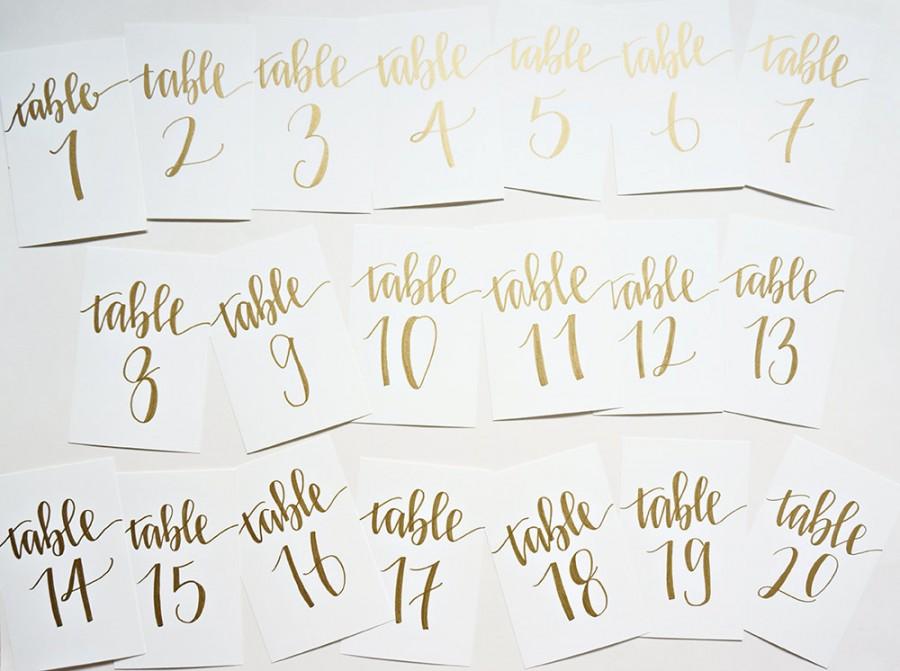 table
1
table
2
table
3
table
4
table
5
table
6
table
7
table
8
table
9
table
10
table
11
table
12
table
13
table
14
table
15
table
16
table
17
table
18
table
19
table
20